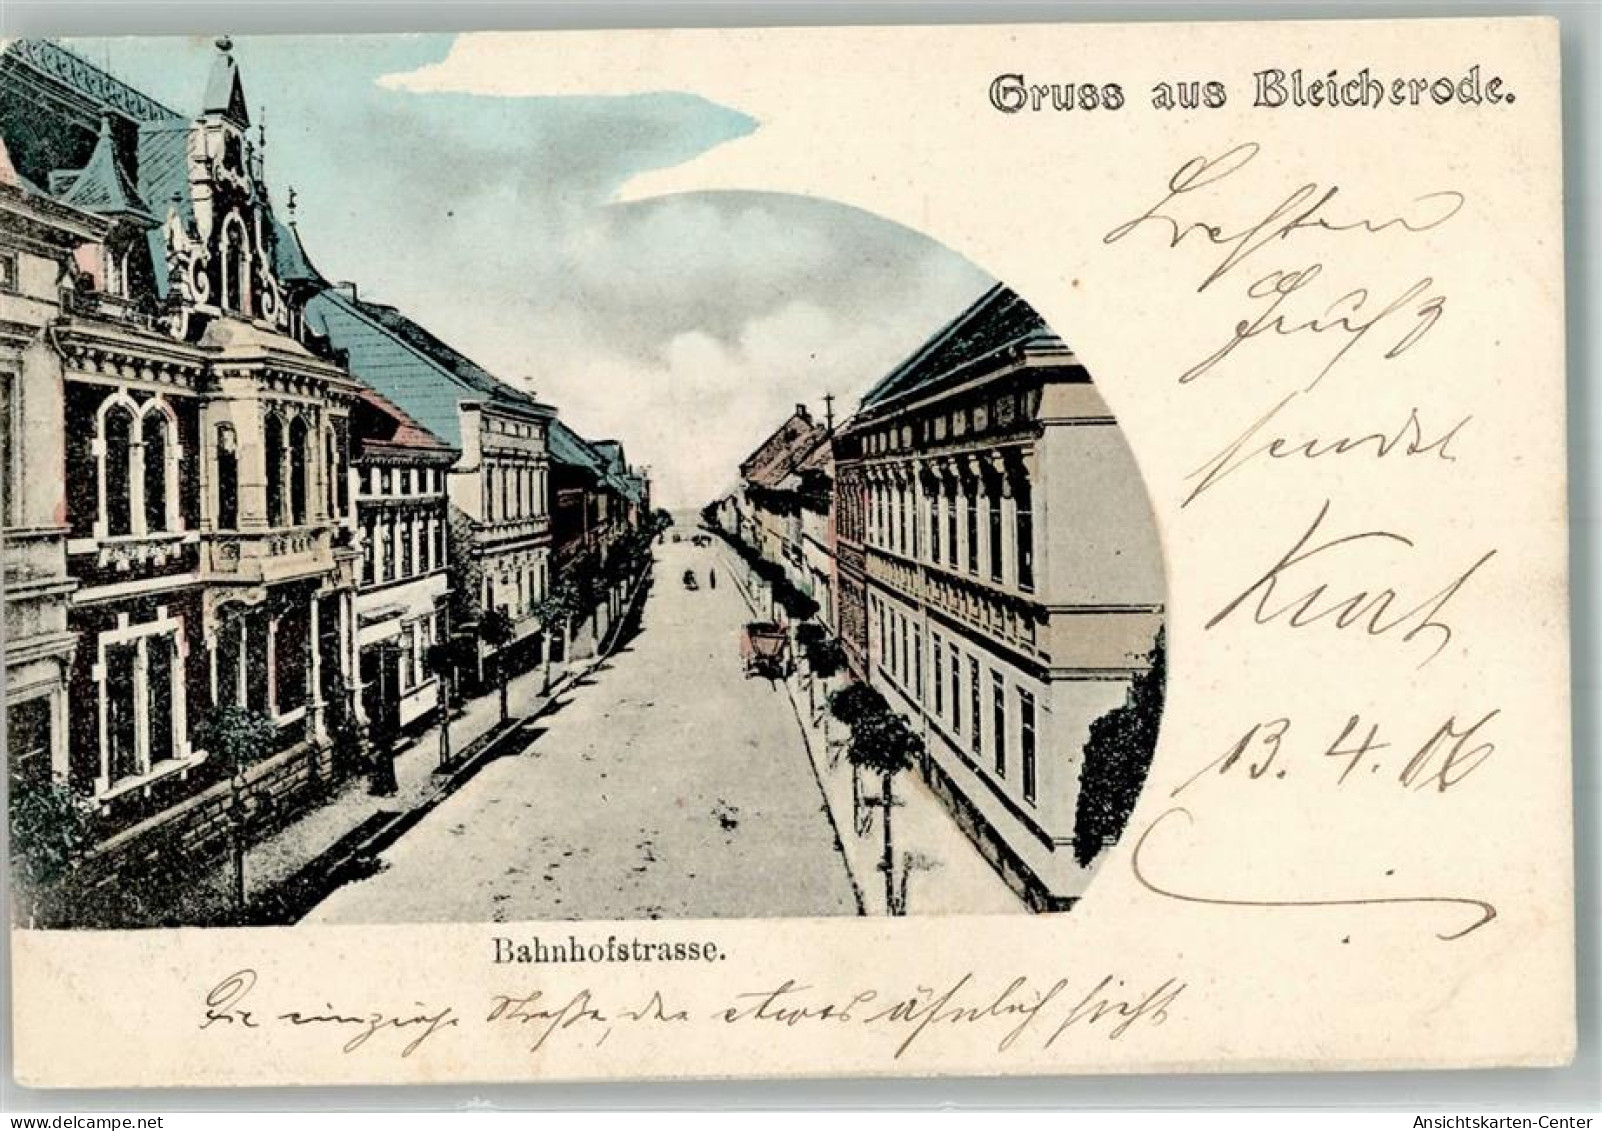 Gruss aus Bleicherode.
Besten
Gruß
sendet
Kurt
13. 4. 06
Bahnhofstrasse.
Die einzige Straße, die etwas ähnlich sieht
Ansichtskarten-Center